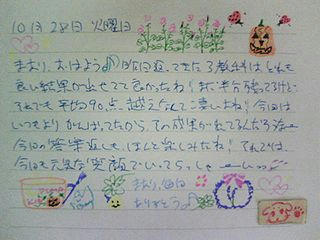 10月28日 火曜日
まおり、おはよう♪ 昨日返ってきた3教科はどれも
良い結果が出せてて良かったね! まだ半分残ってるけど
それでも平均90点越えなんて凄いよね! 今回は
いつもよりがんばってたから、その成果がでてるんだろうな
今日の答案返しも、ほんと楽しみだね! それでは、
今日も元気な笑顔でいってらっしゃーいっ
まおり 毎日
ありがとう♪